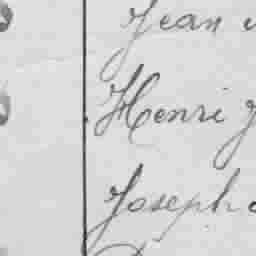 Jean
Henri
Joseph